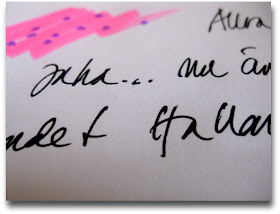 Allra
Jaha... nu är
ndet Hallan